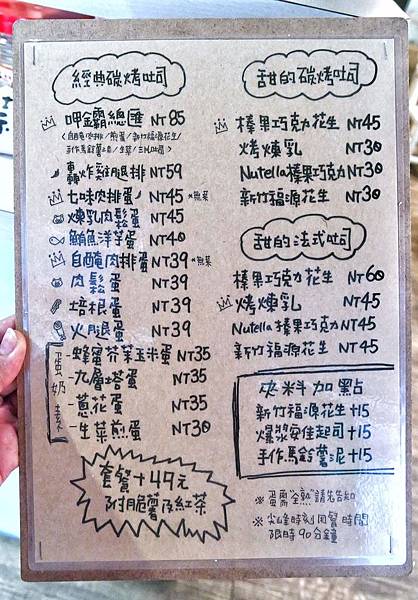 經典碳烤吐司
呷金霸總匯 NT85
(自醃肉排/煎蛋/新竹福源花生/
手作馬鈴薯泥/生菜/三片吐司)
轟炸雞腿排 NT59
七味肉排蛋 NT45 *無菜
煉乳肉鬆蛋 NT45
鮪魚洋芋蛋 NT40
自醃肉排蛋 NT39 *無菜
肉鬆蛋 NT39
培根蛋 NT39
火腿蛋 NT39
蛋奶素
-蜂蜜芥茉玉米蛋 NT35
-九層塔蛋 NT35
-蔥花蛋 NT35
-生菜煎蛋 NT30
套餐+49元
附脆薯及紅茶
甜的碳烤吐司
榛果巧克力花生 NT45
烤煉乳 NT30
Nutella榛果巧克力 NT30
新竹福源花生 NT30
甜的法式吐司
榛果巧克力花生 NT60
烤煉乳 NT45
Nutella榛果巧克力 NT45
新竹福源花生 NT45
夾料加點
新竹福源花生+15
爆漿安佳起司+15
手作馬鈴薯泥+15
※蛋需"全熟"請先告知
※尖峰時刻用餐時間
限時90分鐘